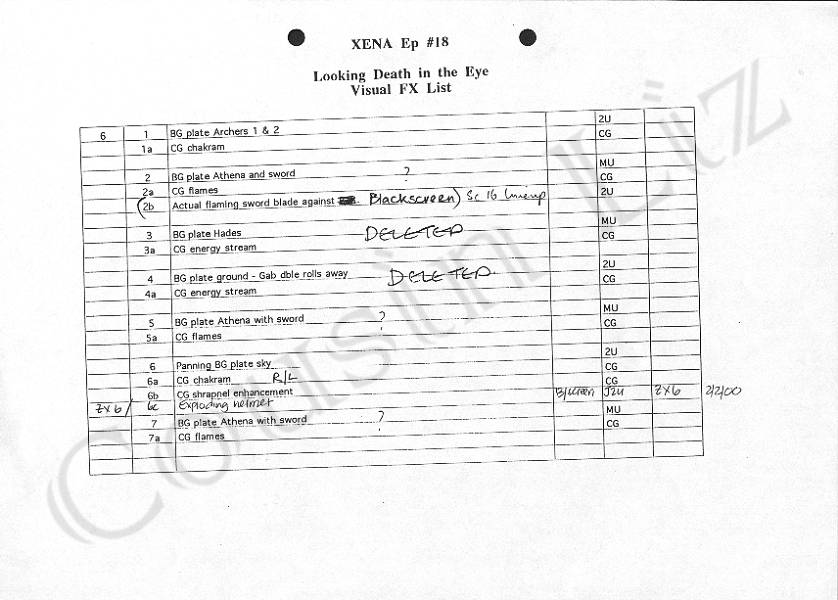 XENA Ep #18
Looking Death in the Eye
Visual FX List
2U
6 1 BG plate Archers 1 & 2 CG
1a CG chakram
MU
2 BG plate Athena and sword ? CG
2a CG flames 2U
(2b Actual flaming sword blade against Blackscreen) Sc 16 lineup
MU
3 BG plate Hades DELETED CG
3a CG energy stream
2U
4 BG plate ground - Gab dble rolls away DELETED. CG
4a CG energy stream
MU
5 BG plate Athena with sword ? CG
5a CG flames
2U
6 Panning BG plate sky CG
6a CG chakram R/L CG
6b CG shrapnel enhancement B/screen J2U ZX6 2/2/00
ZX6/ 6c Exploding helmet MU
7 BG plate Athena with sword ? CG
7a CG flames
Cousin Liz